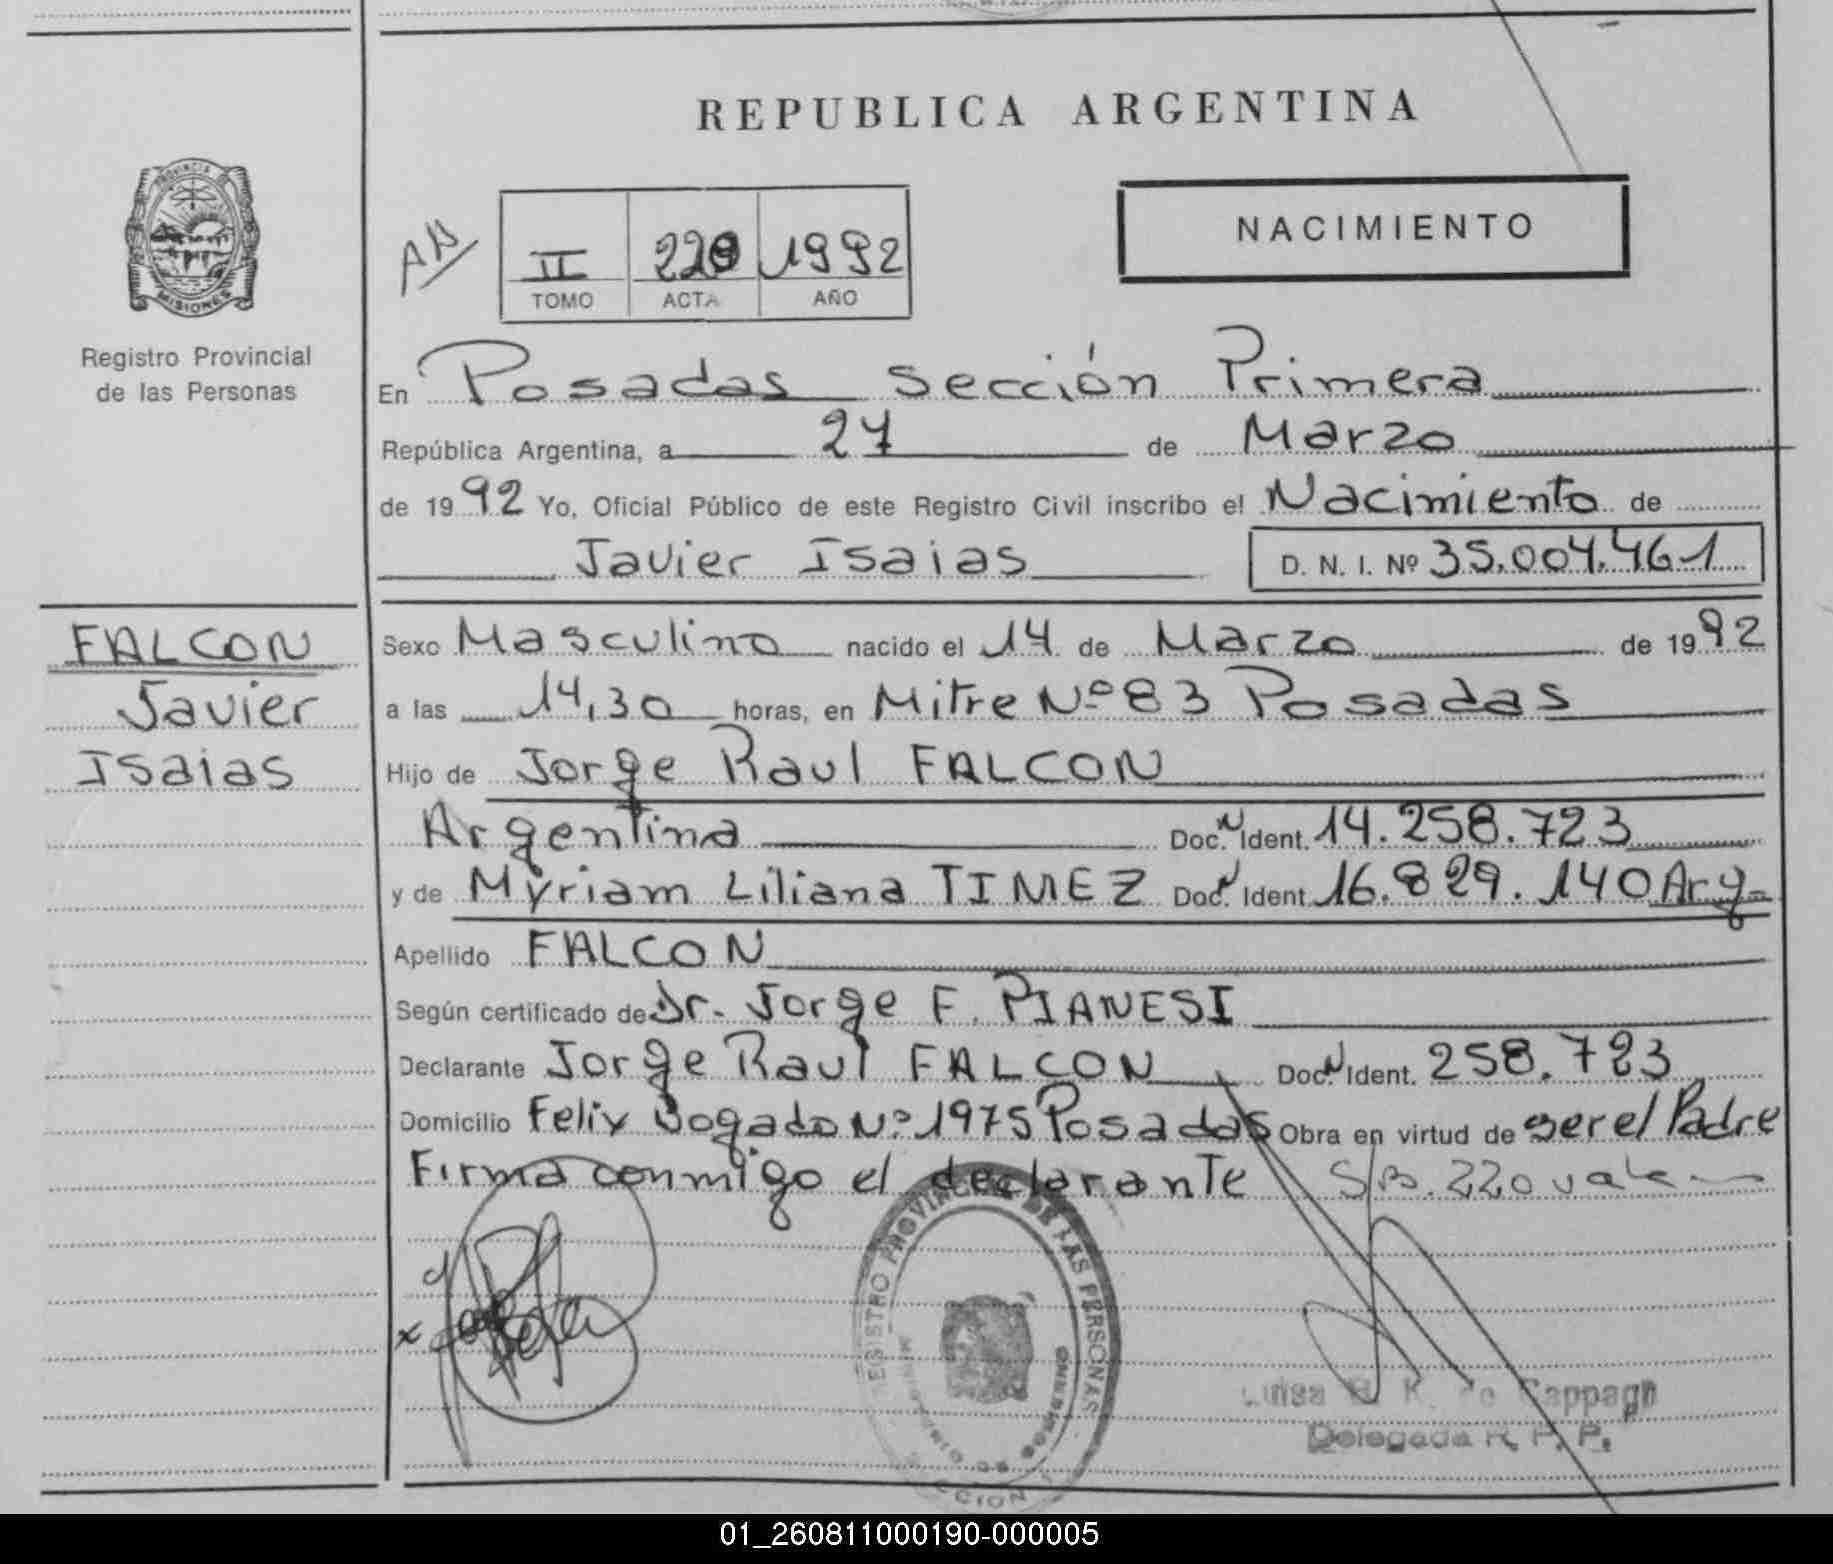 REPUBLICA ARGENTINA
PROVINCIA DE
MISIONES
Registro Provincial
de las Personas
NACIMIENTO
II 220 1992
TOMO ACTA AÑO
En Posadas Sección Primera
República Argentina, a 27 de Marzo
de 1992 Yo, Oficial Público de este Registro Civil inscribo el Nacimiento de
Javier Isaias D. N. I. Nº 35.004.461
FALCON
Javier
Isaias
Sexo Masculino nacido el 14 de Marzo de 1992
a las 14,30 horas, en Mitre Nº 83 Posadas
Hijo de Jorge Raul FALCON
Argentina Doc. N Ident. 14.258.723
y de Myriam Liliana TIMEZ Doc. N Ident. 16.829.140 Arg.
Apellido FALCON
Según certificado de Dr. Jorge F. PIANESI
Declarante Jorge Raul FALCON Doc. N Ident. 258.723
Domicilio Felix Bogado Nº 1975 Posadas Obra en virtud de ser el Padre
Firma conmigo el declarante S/B. 220 vale
REGISTRO PROVINCIAL DE LAS PERSONAS
MINISTERIO DE GOBIERNO
Luisa K. de Cappagh
Delegada R. P. P.
01_260811000190-000005